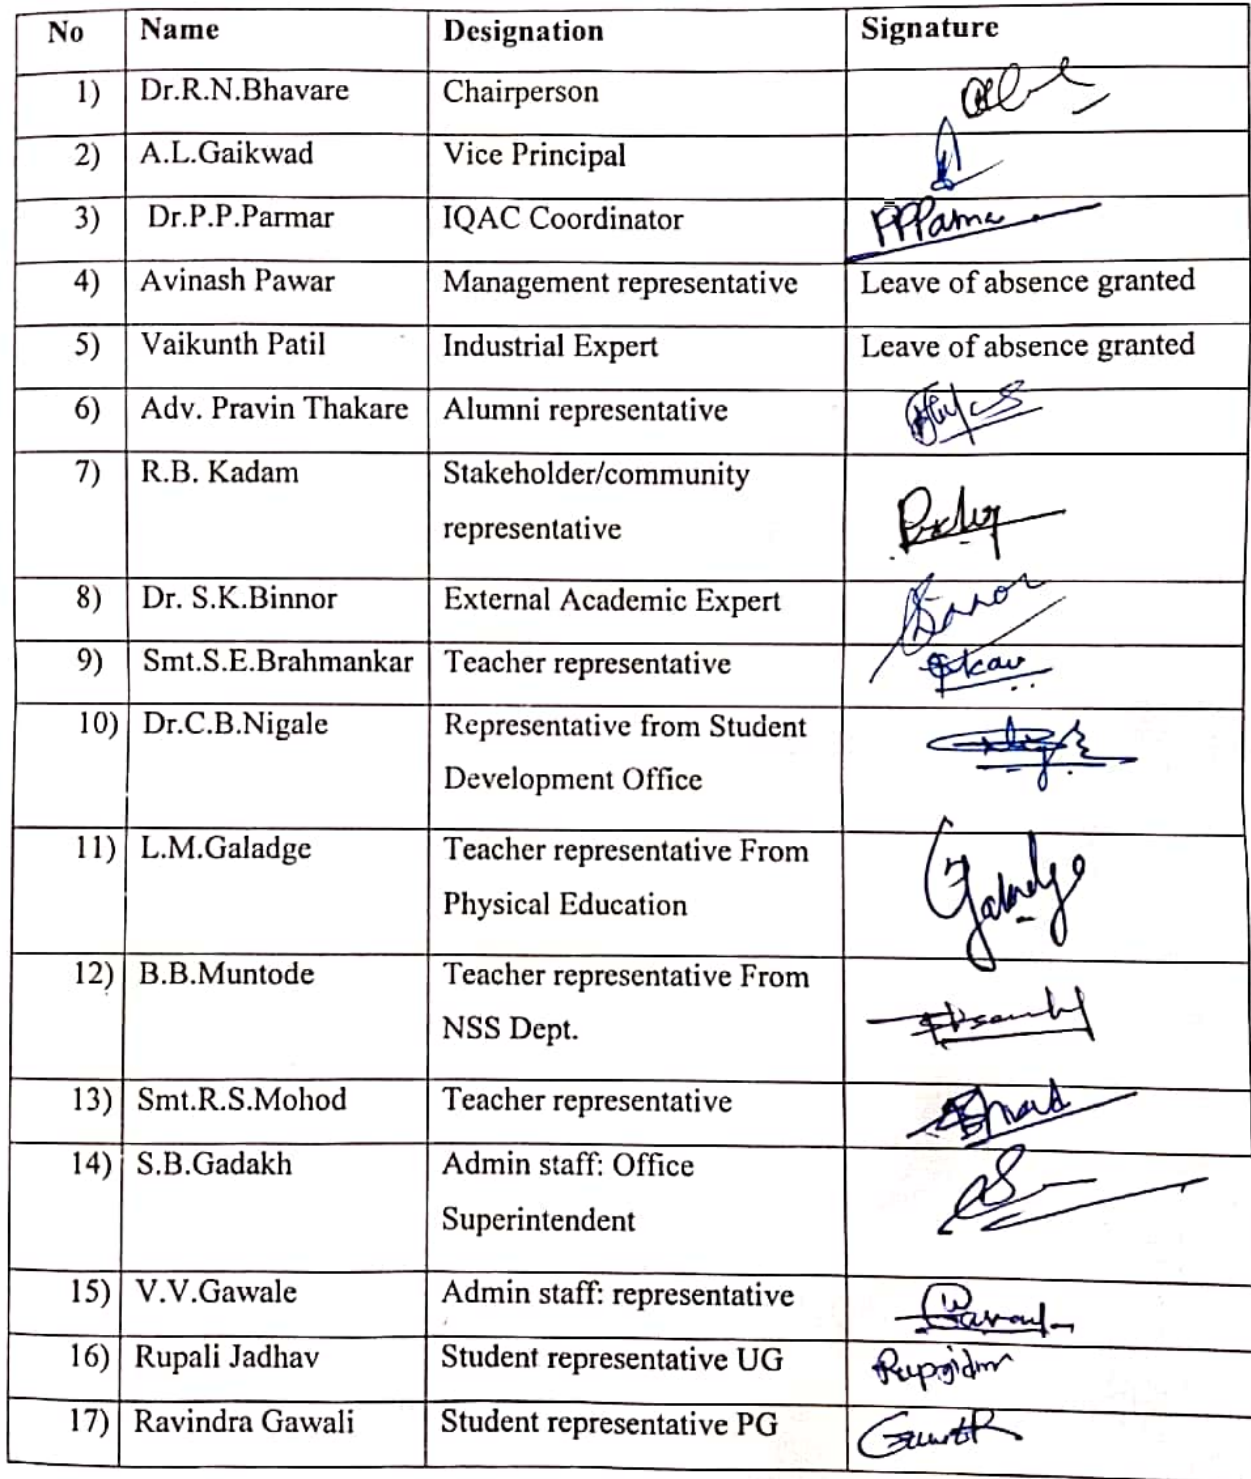 No Name Designation Signature
1) Dr.R.N.Bhavare Chairperson
2) A.L.Gaikwad Vice Principal
3) Dr.P.P.Parmar IQAC Coordinator PPParma
4) Avinash Pawar Management representative Leave of absence granted
5) Vaikunth Patil Industrial Expert Leave of absence granted
6) Adv. Pravin Thakare Alumni representative
7) R.B. Kadam Stakeholder/community
representative
8) Dr. S.K.Binnor External Academic Expert
9) Smt.S.E.Brahmankar Teacher representative
10) Dr.C.B.Nigale Representative from Student
Development Office
11) L.M.Galadge Teacher representative From
Physical Education
12) B.B.Muntode Teacher representative From
NSS Dept.
13) Smt.R.S.Mohod Teacher representative
14) S.B.Gadakh Admin staff: Office
Superintendent
15) V.V.Gawale Admin staff: representative
16) Rupali Jadhav Student representative UG
17) Ravindra Gawali Student representative PG